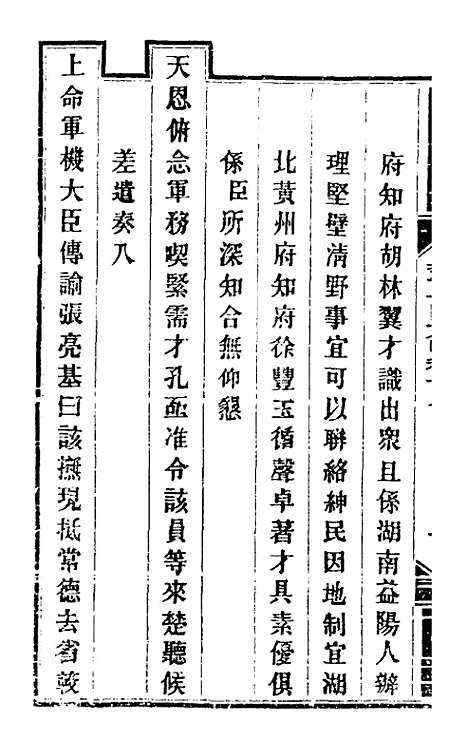 府知府胡林翼才識出衆且係湖南益陽人辦
理堅壁清野事宜可以聯絡紳民因地制宜湖
北黃州府知府徐豐玉循聲卓著才具素優俱
係臣所深知合無仰懇
天恩俯念軍務喫緊需才孔亟准令該員等來楚聽候
差遣奏入
上命軍機大臣傳諭張亮基曰該撫現抵常德去省較